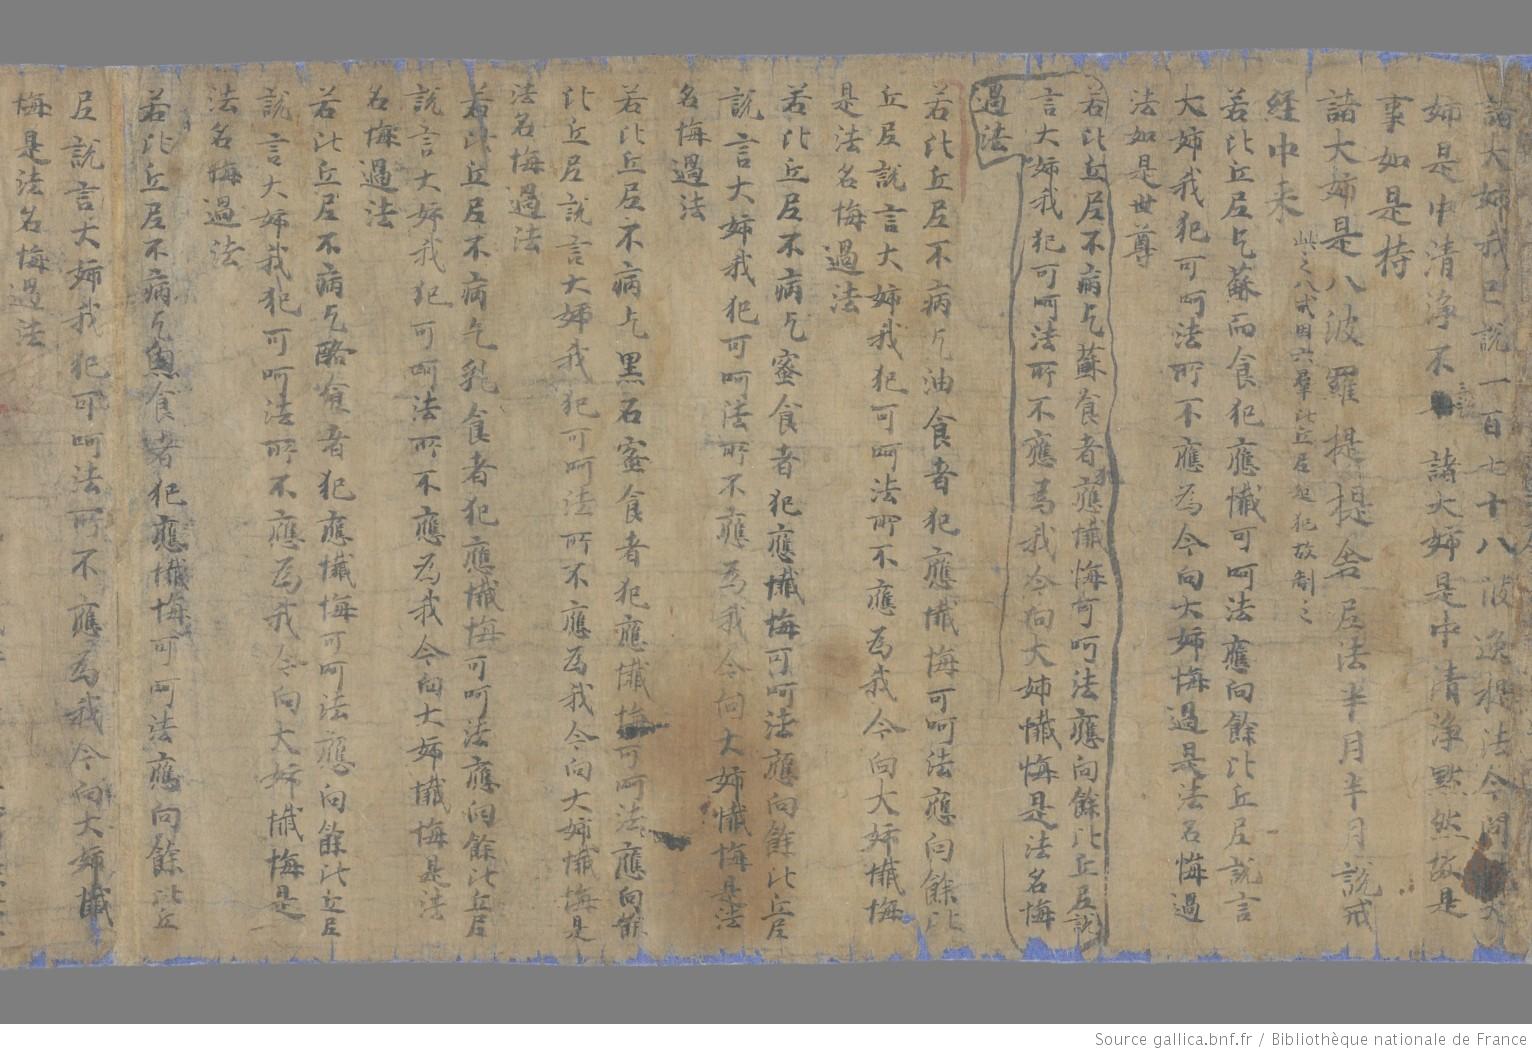 諸大姉我已說一百七十八波逸提法今問諸大
姉是中清淨不 諸大姉是中清淨默然故是
事如是持
諸大姉是八波羅提提舍尼法半月半月說戒
經中来
此之八戒因六羣比丘尼起犯故制之
若比丘尼乞蘇而食犯應懺可呵法應向餘比丘尼說言
大姉我犯可呵法所不應為今向大姉悔過是法名悔過
法如是世尊
若比丘尼不病乞蘇食者犯應懺悔可呵法應向餘比丘尼說
言大姉我犯可呵法所不應為我今向大姉懺悔是法名悔
過法
若比丘尼不病乞油食者犯應懺悔可呵法應向餘比
丘尼說言大姉我犯可呵法所不應為我今向大姉懺悔
是法名悔過法
若比丘尼不病乞蜜食者犯應懺悔可呵法應向餘比丘尼
說言大姉我犯可呵法所不應為我今向大姉懺悔是法
名悔過法
若比丘尼不病乞黑石蜜食者犯應懺悔可呵法應向餘
比丘尼說言大姉我犯可呵法所不應為我今向大姉懺悔是
法名悔過法
若比丘尼不病乞乳食者犯應懺悔可呵法應向餘比丘尼
說言大姉我犯可呵法所不應為我今向大姉懺悔是法
名悔過法
若比丘尼不病乞酪食者犯應懺悔可呵法應向餘比丘尼
說言大姉我犯可呵法所不應為我今向大姉懺悔是
法名悔過法
若比丘尼不病乞魚食者犯應懺悔可呵法應向餘比丘
尼說言大姉我犯可呵法所不應為我今向大姉懺
悔是法名悔過法
Source gallica.bnf.fr / Bibliothèque nationale de France